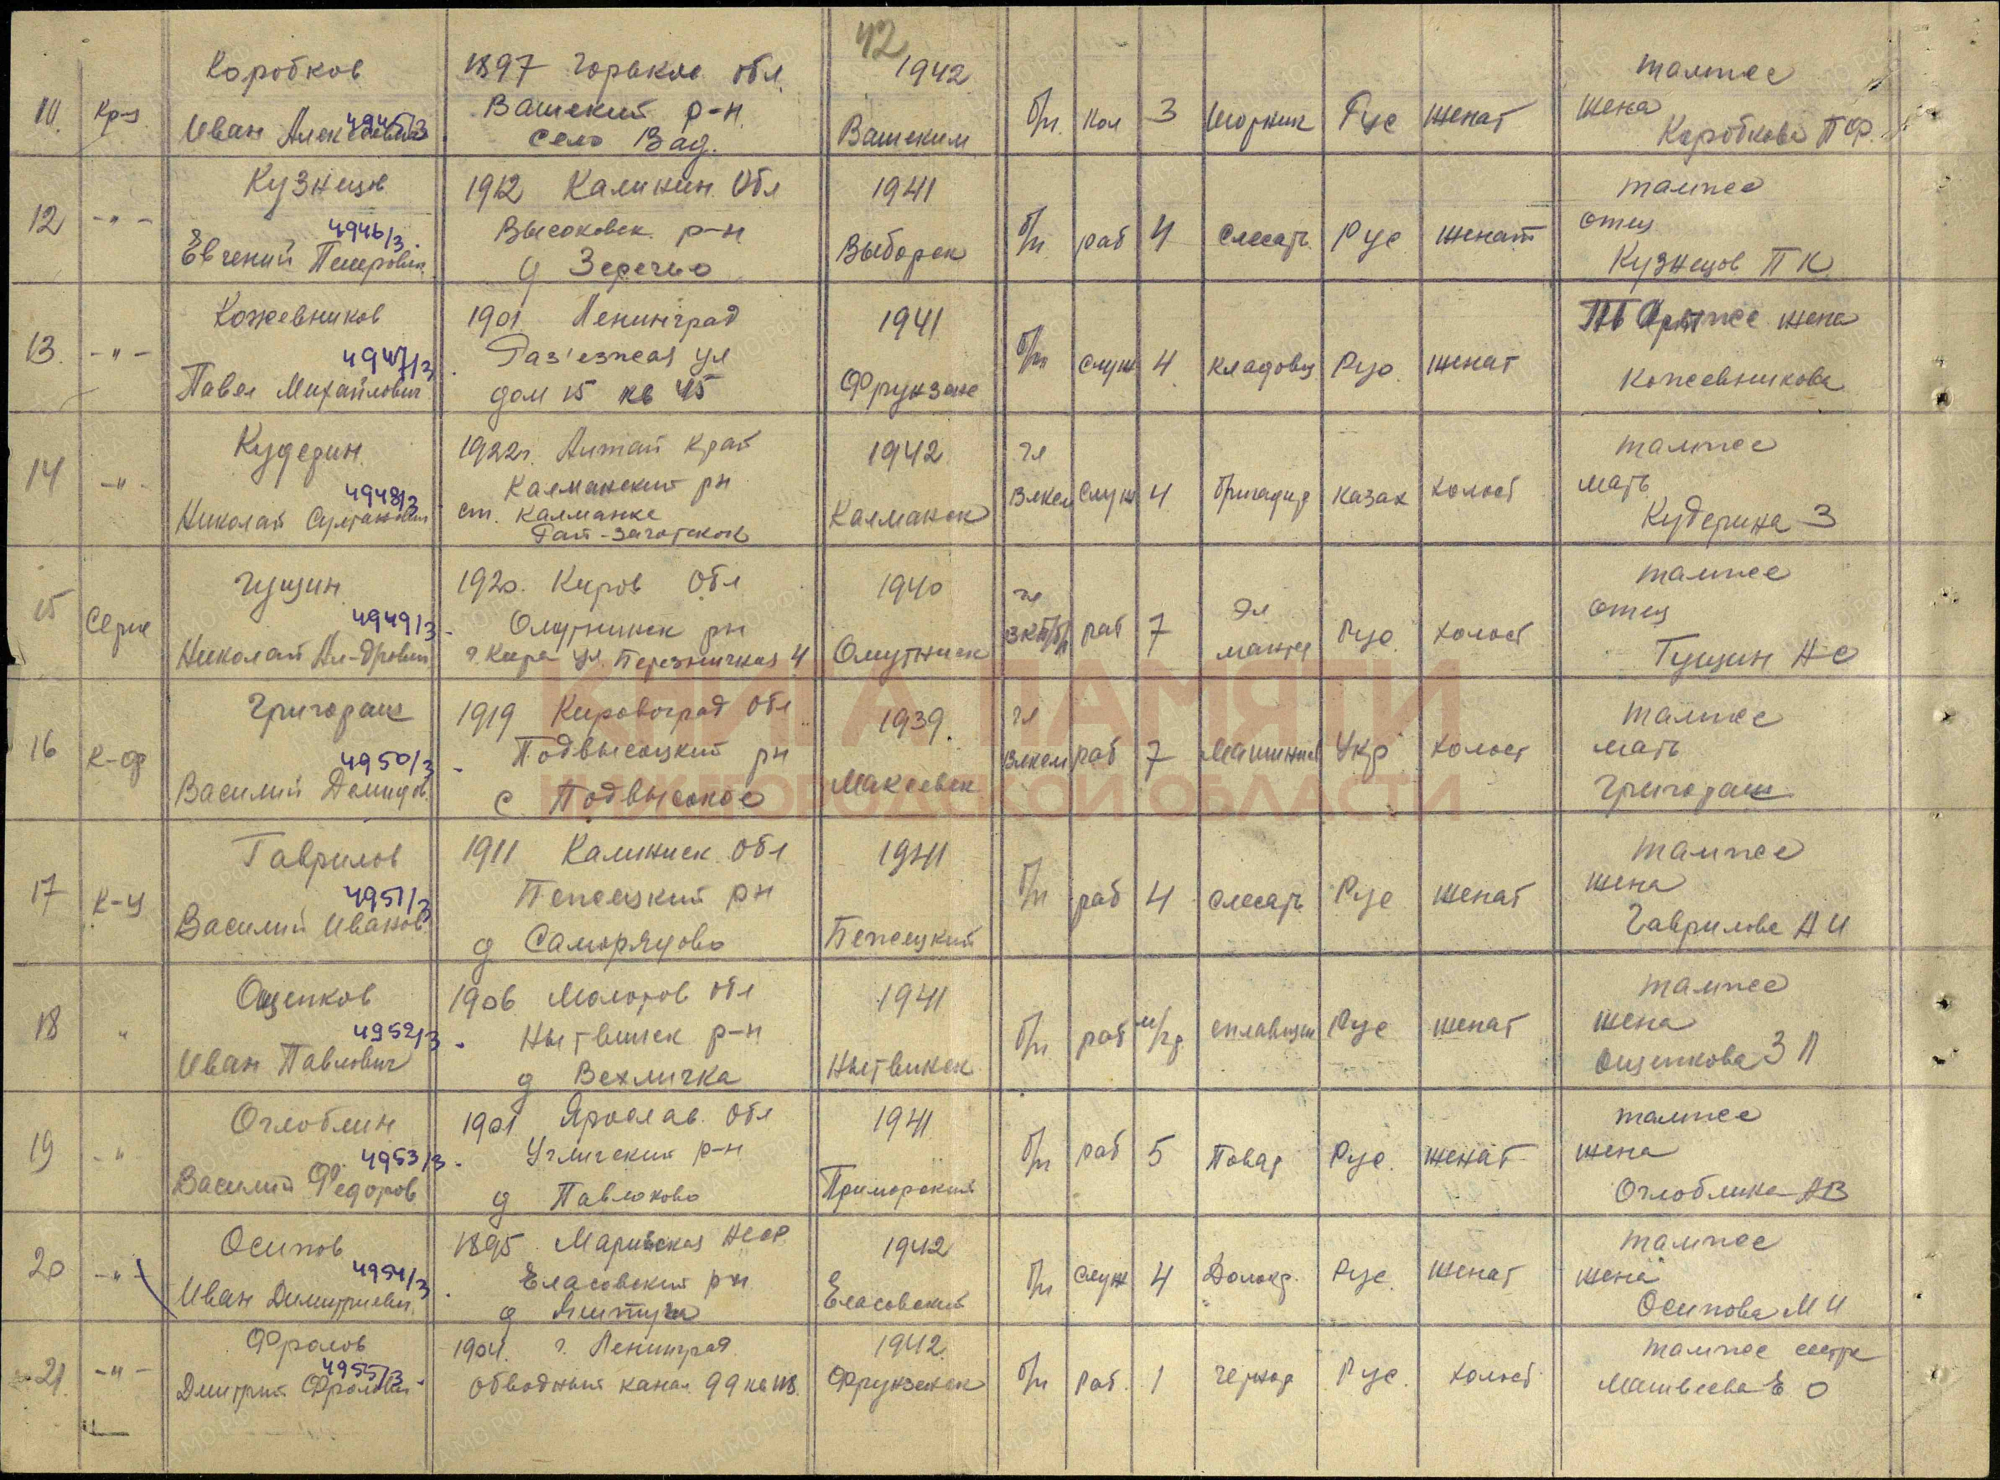 42
11. Кр-ц Коробков 1897 Горьков. обл. 1942 там же
Иван Алексеевич 4945/3 Вашский р-н. Вашским б/п. кол 3 шорник Рус женат жена
село Вад. Коробкова П Ф.
12 -"- Кузнецов 1912 Калинин. обл 1941 там же
4946/3. Высоковск. р-н б/п раб 4 слесарь. Рус женат отец
Евгений Петрович д Заречье Выборск Кузнецов П К.
13. -"- Кожевников 1901 Ленинград 1941 там же жена
4947/3. Раз'езжая ул б/п служ 4 кладовщ Рус. женат
Павел Михайлович дом 15 кв 45 Фрунзенс Кожевникова
14 -"- Кудерин 1922г. Алтай край 1942 чл там же
4948/3 Калманский рн влксм служ 4 бригадир казах холост мать
Николай Султанович ст. Калманка Калманск Кудерина З
Рай-заготскот
15 Серж Гущин 1920. Киров обл 1940 чл там же
4949/3. Омутнинск рн вкп/б/ раб 7 Эл монтер Рус. холост отец
Николай Ал-дрович г. Кирс ул. Березничная 4 Омутнинск Гущин Н С
16 К-ф Григораш 1919 Кировоград обл 1939. чл там же
4950/3. Подвысоцкий рн влксм раб 7 Машинист Укр холост мать
Василий Демидов. с Подвысокое Макеевск Григораш
17 К-ц Гаврилов 1911 Калининск. обл 1941 там же
4951/3 Бежецкий рн б/п раб 4 слесарь Рус женат жена
Василий Иванов. д Саморядово Бежецкий Гаврилова А И
18 " Ощепков 1906 Молотов обл 1941 там же
4952/3. Нытвинск р-н б/п раб м/гр сплавщик Рус женат жена
Иван Павлович д Нытвинск Ощепкова З П
19 -"- Оглоблин 1901 Ярослав. обл 1941 там же
4953/3. Угличский р-н б/п раб 5 Повар Рус. женат жена
Василий Федоров. д Павлоково Приморский Оглоблина АВ
20 -"- Осипов 1895 Марийская АССР 1942 там же
4954/3. Еласовский рн б/п служ 4 Рус. женат жена
Иван Димитриевич. д Еласовский Осипова М И
21. -"- Фролов 1904. г. Ленинград. 1942. там же сестра
4955/3. Дмитрий Фролович обводный канал 99 кв Фрунзенск б/п раб. 1 Рус. холост Матвеева Е О
КНИГА ПАМЯТИ
НИЖЕГОРОДСКОЙ ОБЛАСТИ